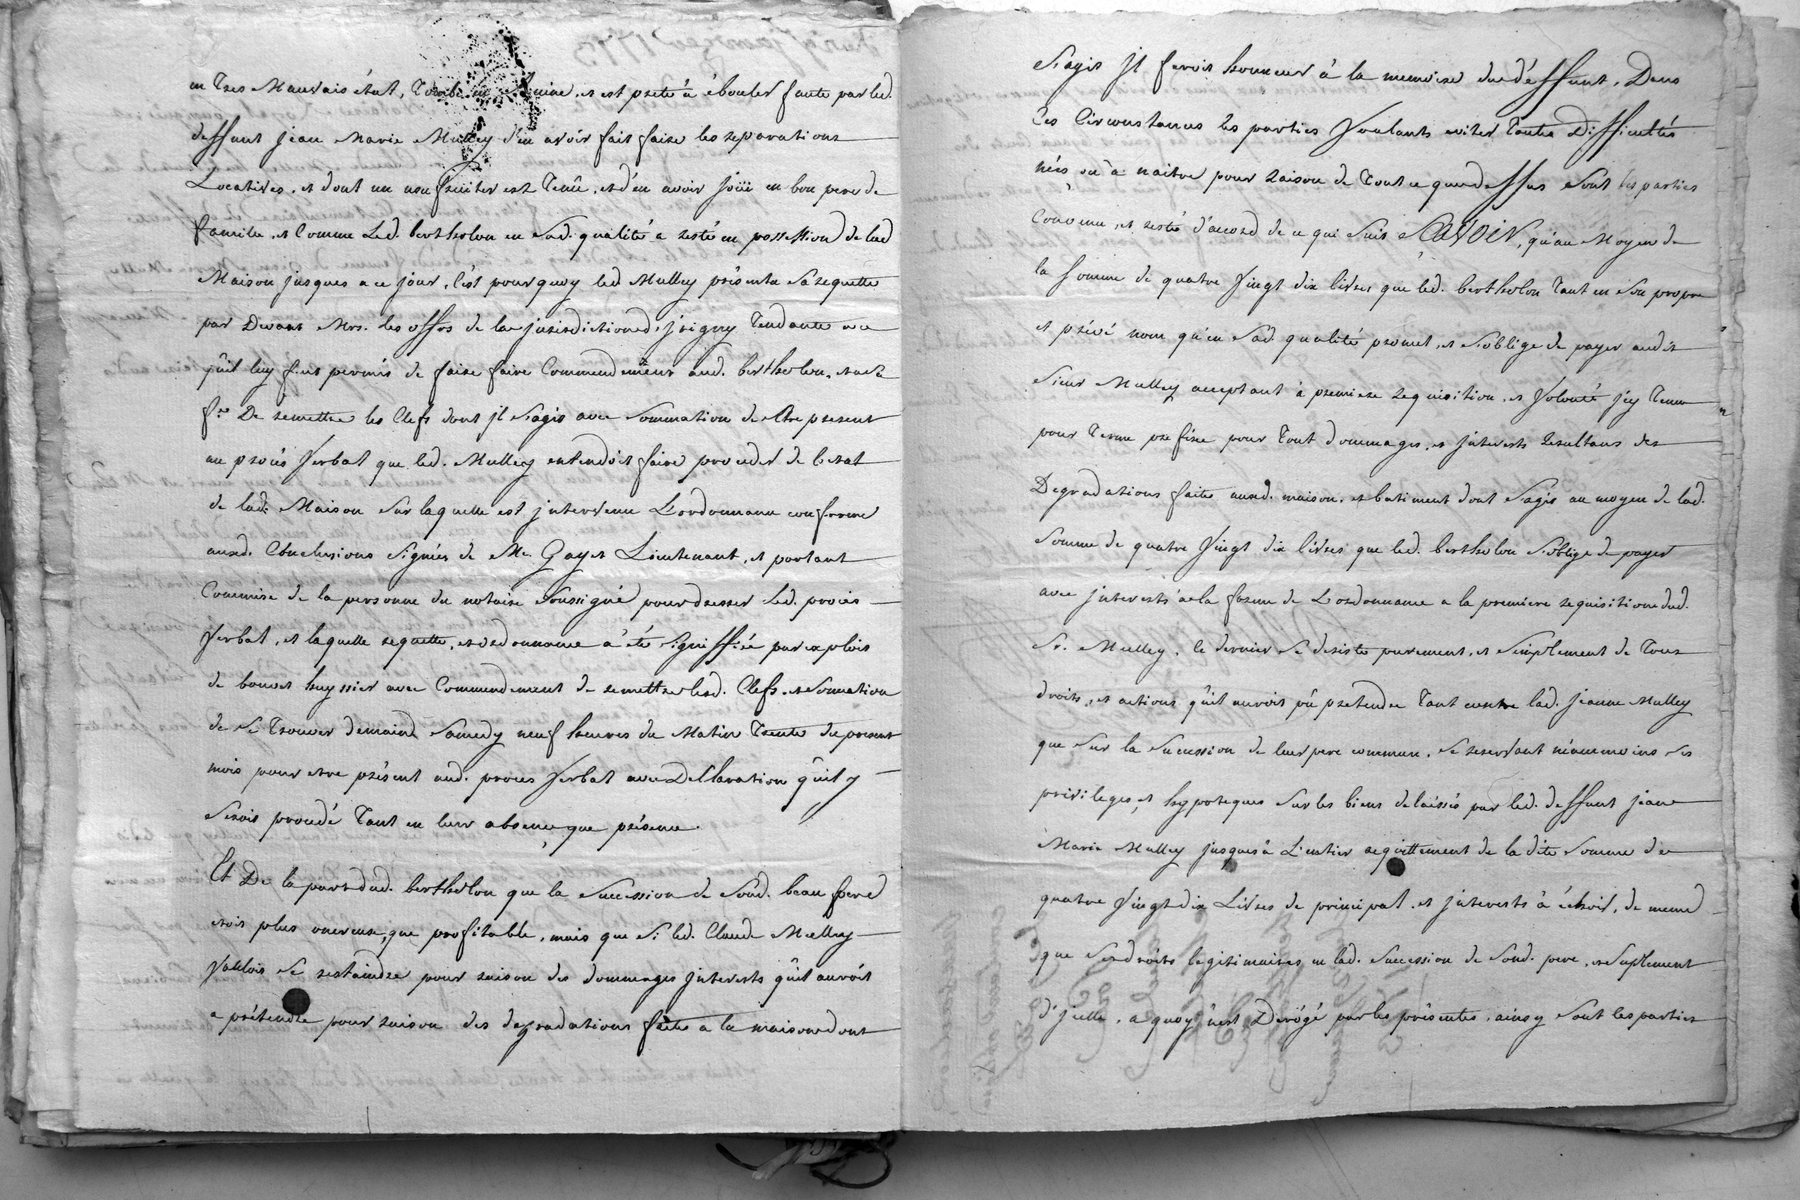 en tres Mauvais état, Tombe en Ruine, et est prete a ébouler faute par led.
deffunt jean Marie Mulley d'en avoir fait faire les reparations
Locatives, et dont un usufruitier est Tenû, et d'en avoir joüi en bon pere de
famille, et Comme Led. bertholon en Sad. qualité a resté en possession de lad
Maison jusques a ce jour, C'est pourquoy led Mulley présenta Sa requette
par Devant Mrs. les offrs de la jurisdiction d. jrigny Tendante a ce
qu'il luy fut permis de faire faire Commendement aud. bertholon, et a sa
fe. De remettre les Clefs dont jl S'agis avec Sommation de Etre present
au procés Verbal que led. Mulley entendoit faire proceder de l'etat
de lad. Maison Sur laquelle est jntervenu L'ordonnance conforme
auxd. Conclusions Signées de Me. Gayet Lieutenant, et portant
Commise de la personne du notaire Soussigné pour dresser led. procés
Verbal, et laquelle requette, et ordonnance a été Signiffiée par exploit
de bonnet huyssier avec Commendement de remettre lesd. Clefs et Sommation
de Se Trouver demain Samedy neuf heures du Matin Trente du present
mois pour etre présent aud. procés Verbal avec Declaration qu'il y
Seroit procedé Tant en leur absence, que présence.
Et De la part dud. bertholon que la Succession de Sond. beau pere
etoit plus onereuse, que profitable, mais que Si led. Claude Mulley
Vouloit Se restaindre pour raison des dommages jnterests qu'il auroit
a prétendre pour raison des degradations faites a la maison dont
S'agis jl feroit honneur à la memoire du deffunt, Dans
Ces Circonstances les parties Voulants eviter Toutes Difficultés
nées ou à naitre pour raison de Tout ce que dessus Sont les parties
Convenu, et resté d'accord de ce qui Suit SCAVOIR, qu'au Moyen de
la Somme de quatre Vingt dix livres que led. bertholon Tant en Son propre
et privé nom qu'en Sad. qualité promet, et S'oblige de payer audit
Sieur Mulley acceptant à premiere requisition, et Volonté jcy Tenu
pour Terme prefixe pour Tout dommages, et jnterests resultans des
Degradations faites auxd. maison, et batiment dont S'agis au moyen de lad.
Somme de quatre Vingt dix livres que led. bertholon S'oblige de payer
avec jnterests a la forme de L'ordonnance a la premiere requisition dud.
Sr. Mulley, Ce dernier Se desiste purement, et Simplement de Tous
droits, et actions qu'il auroit pû pretendre Tant contre lad. jeanne Mulley
que Sur la Succession de leur pere commun, Se reservant néanmoins Ses
privileges, et hypoteques Sur les biens delaissés par led. deffunt jean
Marie Mulley jusques à L'entier acquittement de la dite Somme de
quatre Vingt dix Livres de principal, et jnterests à échoir, de meme
que Ses droits legitimaires en lad. Succession de Sond. pere, et Suplement
d'jcelle, a quoy n'est Derogé par les présentes, ainsy Sont les parties